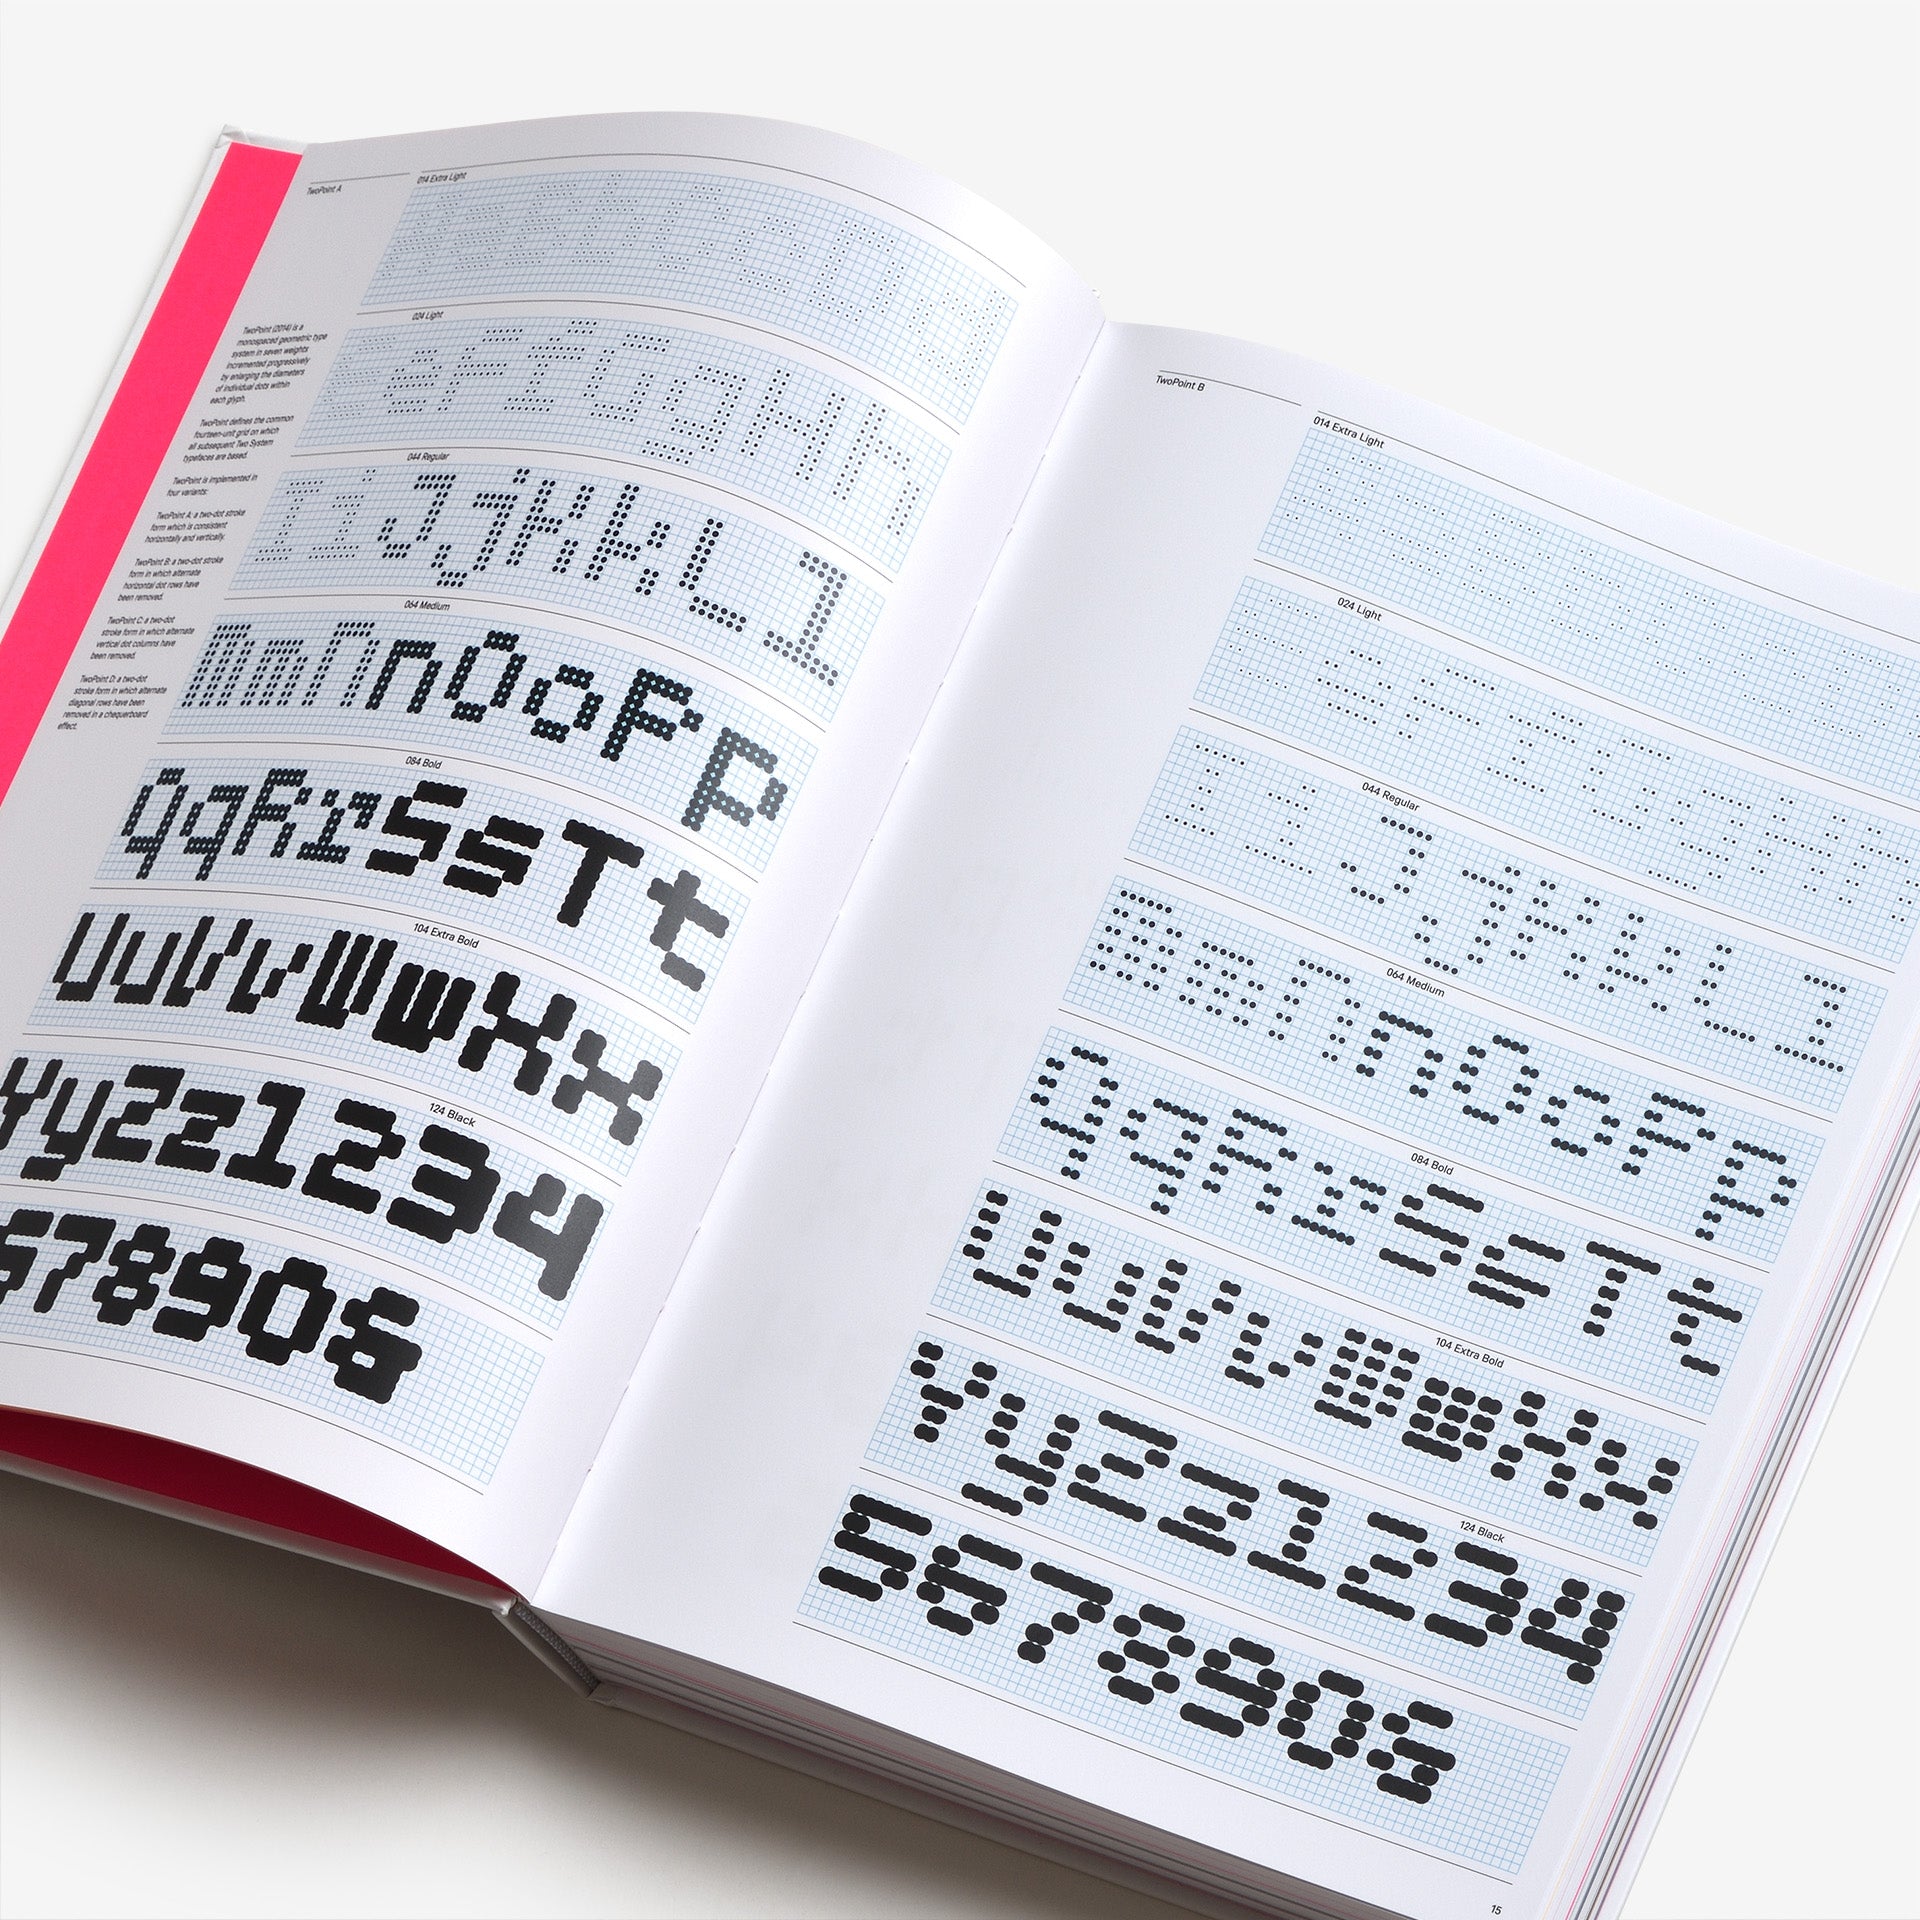 TwoPoint A
TwoPoint (2014) is a
monospaced geometric type
system in seven weights
incremented progressively
by enlarging the diameters
of individual dots within
each glyph.
TwoPoint defines the common
fourteen-unit grid on which
all subsequent Two System
typefaces are based.
TwoPoint is implemented in
four variants:
TwoPoint A: a two-dot stroke
form which is consistent
horizontally and vertically.
TwoPoint B: a two-dot stroke
form in which alternate
horizontal dot rows have
been removed.
TwoPoint C: a two-dot
stroke form in which alternate
vertical dot columns have
been removed.
TwoPoint D: a two-dot
stroke form in which alternate
diagonal rows have been
removed in a chequerboard
effect.
014 Extra Light
024 Light
eFfGgHh
044 Regular
IiJjKkLl
064 Medium
MmNnOoPp
084 Bold
QqRrSsTt
104 Extra Bold
UuVvWwXx
124 Black
YyZz1234
567890&
TwoPoint B
014 Extra Light
024 Light
044 Regular
IiJjKkLl
064 Medium
MmNnOoPp
084 Bold
QqRrSsTt
104 Extra Bold
UuVvWwXx
124 Black
YyZz1234
567890&
15